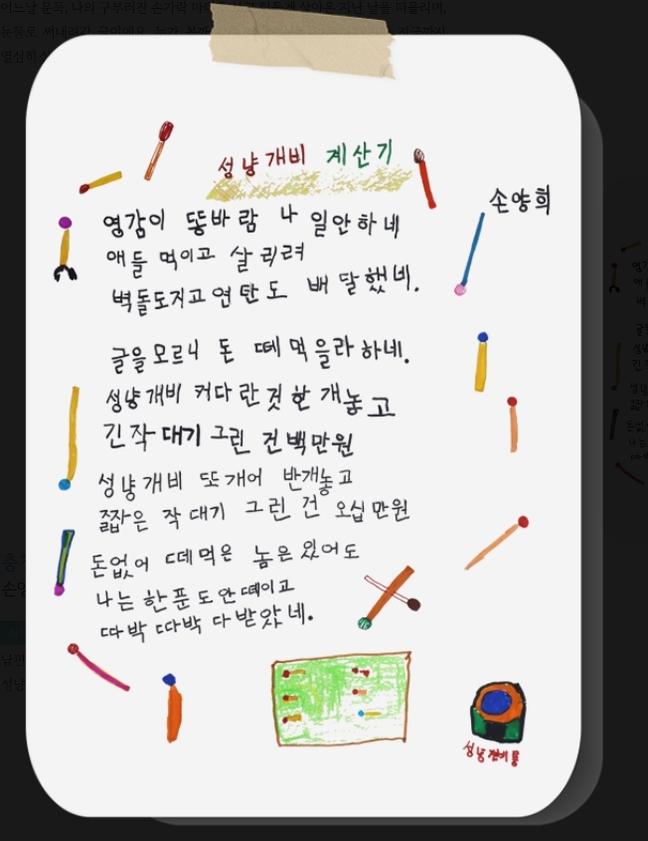 성냥개비 계산기
손양희
영감이 똥바람 나 일안하네
애들 먹이고 살 리려
벽돌도지고 연탄도 배달했네.
글을모르니 돈 떼먹을라하네.
성냥개비 커다란것 한개놓고
긴작대기 그린건백만원
성냥개비 또개어 반개놓고
짧은 작대기 그린건 오십만원
돈없어 떼먹은 놈은있어도
나는 한푼도안떼이고
따박 따박 다받았네.
성냥개비통